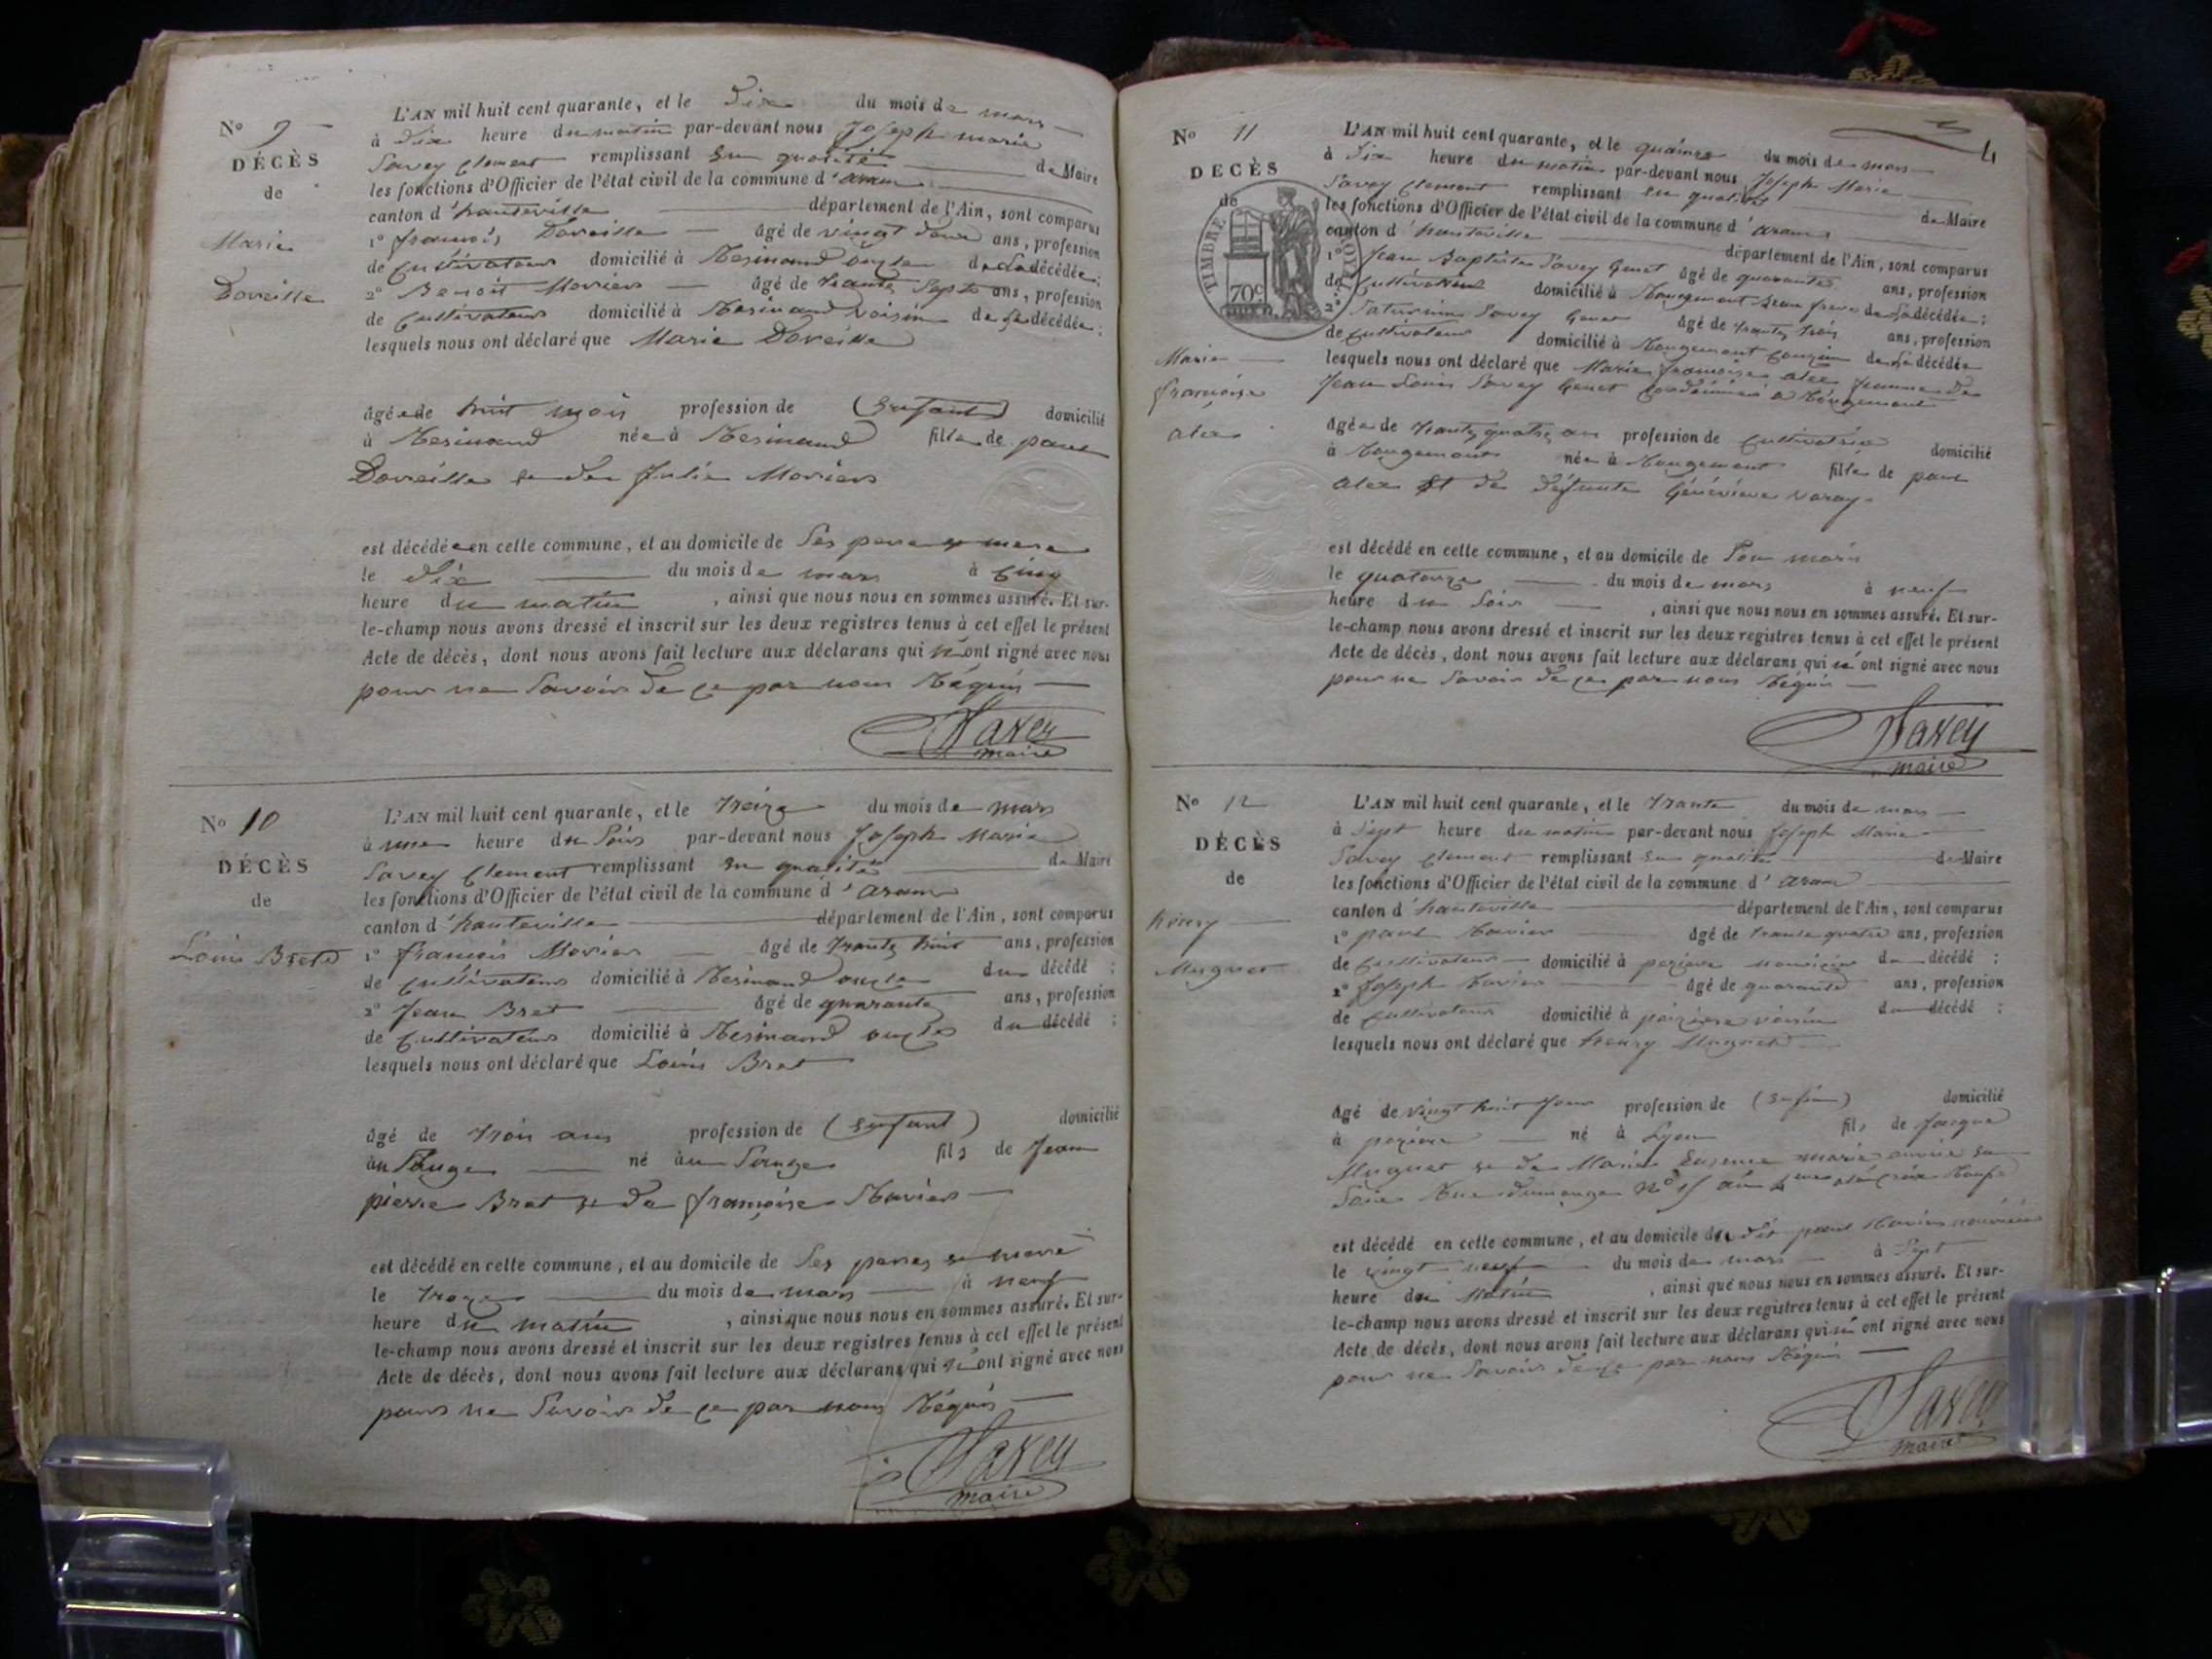 N° 9
DÉCÈS
de
Marie
Daveille
L'AN mil huit cent quarante, et le dix du mois de mars
à dix heure du matin par-devant nous Joseph marie
Savey Clement remplissant en qualité de Maire
les fonctions d'Officier de l'état civil de la commune d'aranc
canton d'hauteville département de l'Ain, sont comparus
1° françois Daveille âgé de vingt deux ans, profession
de cultivateur domicilié à Resinand oncle de La décédée;
2° Benoit Moriers âgé de trente Sept ans, profession
de cultivateur domicilié à Resinand voisin de La décédée;
lesquels nous ont déclaré que Marie Daveille
âgée de huit mois profession de (Enfant) domicilié
à Resinand née à Resinand fille de paul
Daveille et de Julie Moriers
est décédée en cette commune, et au domicile de Ses pere et mere
le dix du mois de mars à cinq
heure du matin, ainsi que nous nous en sommes assuré. Et sur-
le-champ nous avons dressé et inscrit sur les deux registres tenus à cet effet le présent
Acte de décès, dont nous avons fait lecture aux déclarans qui n'ont signé avec nous
pour ne Savoir de ce par nous Réquis
Savey
maire
N° 10
DÉCÈS
de
Louis Bret
L'AN mil huit cent quarante, et le treize du mois de mars
à une heure du Soir par-devant nous Joseph Marie
Savey Clement remplissant en qualité de Maire
les fonctions d'Officier de l'état civil de la commune d'aranc
canton d'hauteville département de l'Ain, sont comparus
1° françois Moriers âgé de trente huit ans, profession
de cultivateur domicilié à Resinand oncle du décédé;
2° Jean Bret âgé de quarante ans, profession
de cultivateur domicilié à Resinand oncle du décédé;
lesquels nous ont déclaré que Louis Bret
âgé de trois ans profession de (Enfant) domicilié
au né au fils de Jean
pierre Bret et de françoise
est décédé en cette commune, et au domicile de Ses peres et mere
le treze du mois de mars à neuf
heure du matin, ainsi que nous nous en sommes assuré. Et sur-
le-champ nous avons dressé et inscrit sur les deux registres tenus à cet effet le présent
Acte de décès, dont nous avons fait lecture aux déclarans qui n'ont signé avec nous
pour ne Savoir de ce par nous Réquis
Savey
maire
4
N° 11
DÉCÈS
de
TIMBRE ROYAL
70c
Marie
françoise
alex
L'AN mil huit cent quarante, et le quinze du mois de mars
à dix heure du matin par-devant nous Joseph Marie
Savey Clement remplissant en qualité de Maire
les fonctions d'Officier de l'état civil de la commune d'aranc
canton d'hauteville département de l'Ain, sont comparus
1° Jean Baptiste Savey Genet âgé de quarante ans, profession
de cultivateur domicilié à Rougemont Beau frere de La décédée;
2° Saturnin Savey Genet âgé de trente trois ans, profession
de cultivateur domicilié à Rougemont cousin de La décédée
lesquels nous ont déclaré que Marie françoise alex femme de
Jean Louis Savey Genet à Rougemont
âgée de trente quatre ans profession de cultivatrice domicilié
à Rougemont née à Rougemont fille de paul
alex et de défunte Généviève
est décédé en cette commune, et au domicile de Son mari
le quatorze du mois de mars à neuf
heure du Soir, ainsi que nous nous en sommes assuré. Et sur-
le-champ nous avons dressé et inscrit sur les deux registres tenus à cet effet le présent
Acte de décès, dont nous avons fait lecture aux déclarans qui n'ont signé avec nous
pour ne Savoir de ce par nous Réquis
Savey
maire
N° 12
DÉCÈS
de
henry
Muguet
L'AN mil huit cent quarante, et le trente du mois de mars
à Sept heure du matin par-devant nous Joseph Marie
Savey Clement remplissant en qualité de Maire
les fonctions d'Officier de l'état civil de la commune d'aranc
canton d'hauteville département de l'Ain, sont comparus
1° paul âgé de trente quatre ans, profession
de cultivateur domicilié à nouricier du décédé;
2° Joseph âgé de quarante ans, profession
de cultivateur domicilié à voisin du décédé;
lesquels nous ont déclaré que henry Muguet
âgé de vingt huit jour profession de (Enfan) domicilié
à né à Lyon fils de Jacque
Muguet et de Marie en
Soie Rue N° à la croix Rousse
est décédé en cette commune, et au domicile du dit paul nouricier
le vingt neuf du mois de mars à Sept
heure du Matin, ainsi que nous nous en sommes assuré. Et sur-
le-champ nous avons dressé et inscrit sur les deux registres tenus à cet effet le présent
Acte de décès, dont nous avons fait lecture aux déclarans qui n'ont signé avec nous
pour ne Savoir de ce par nous Réquis
Savey
maire